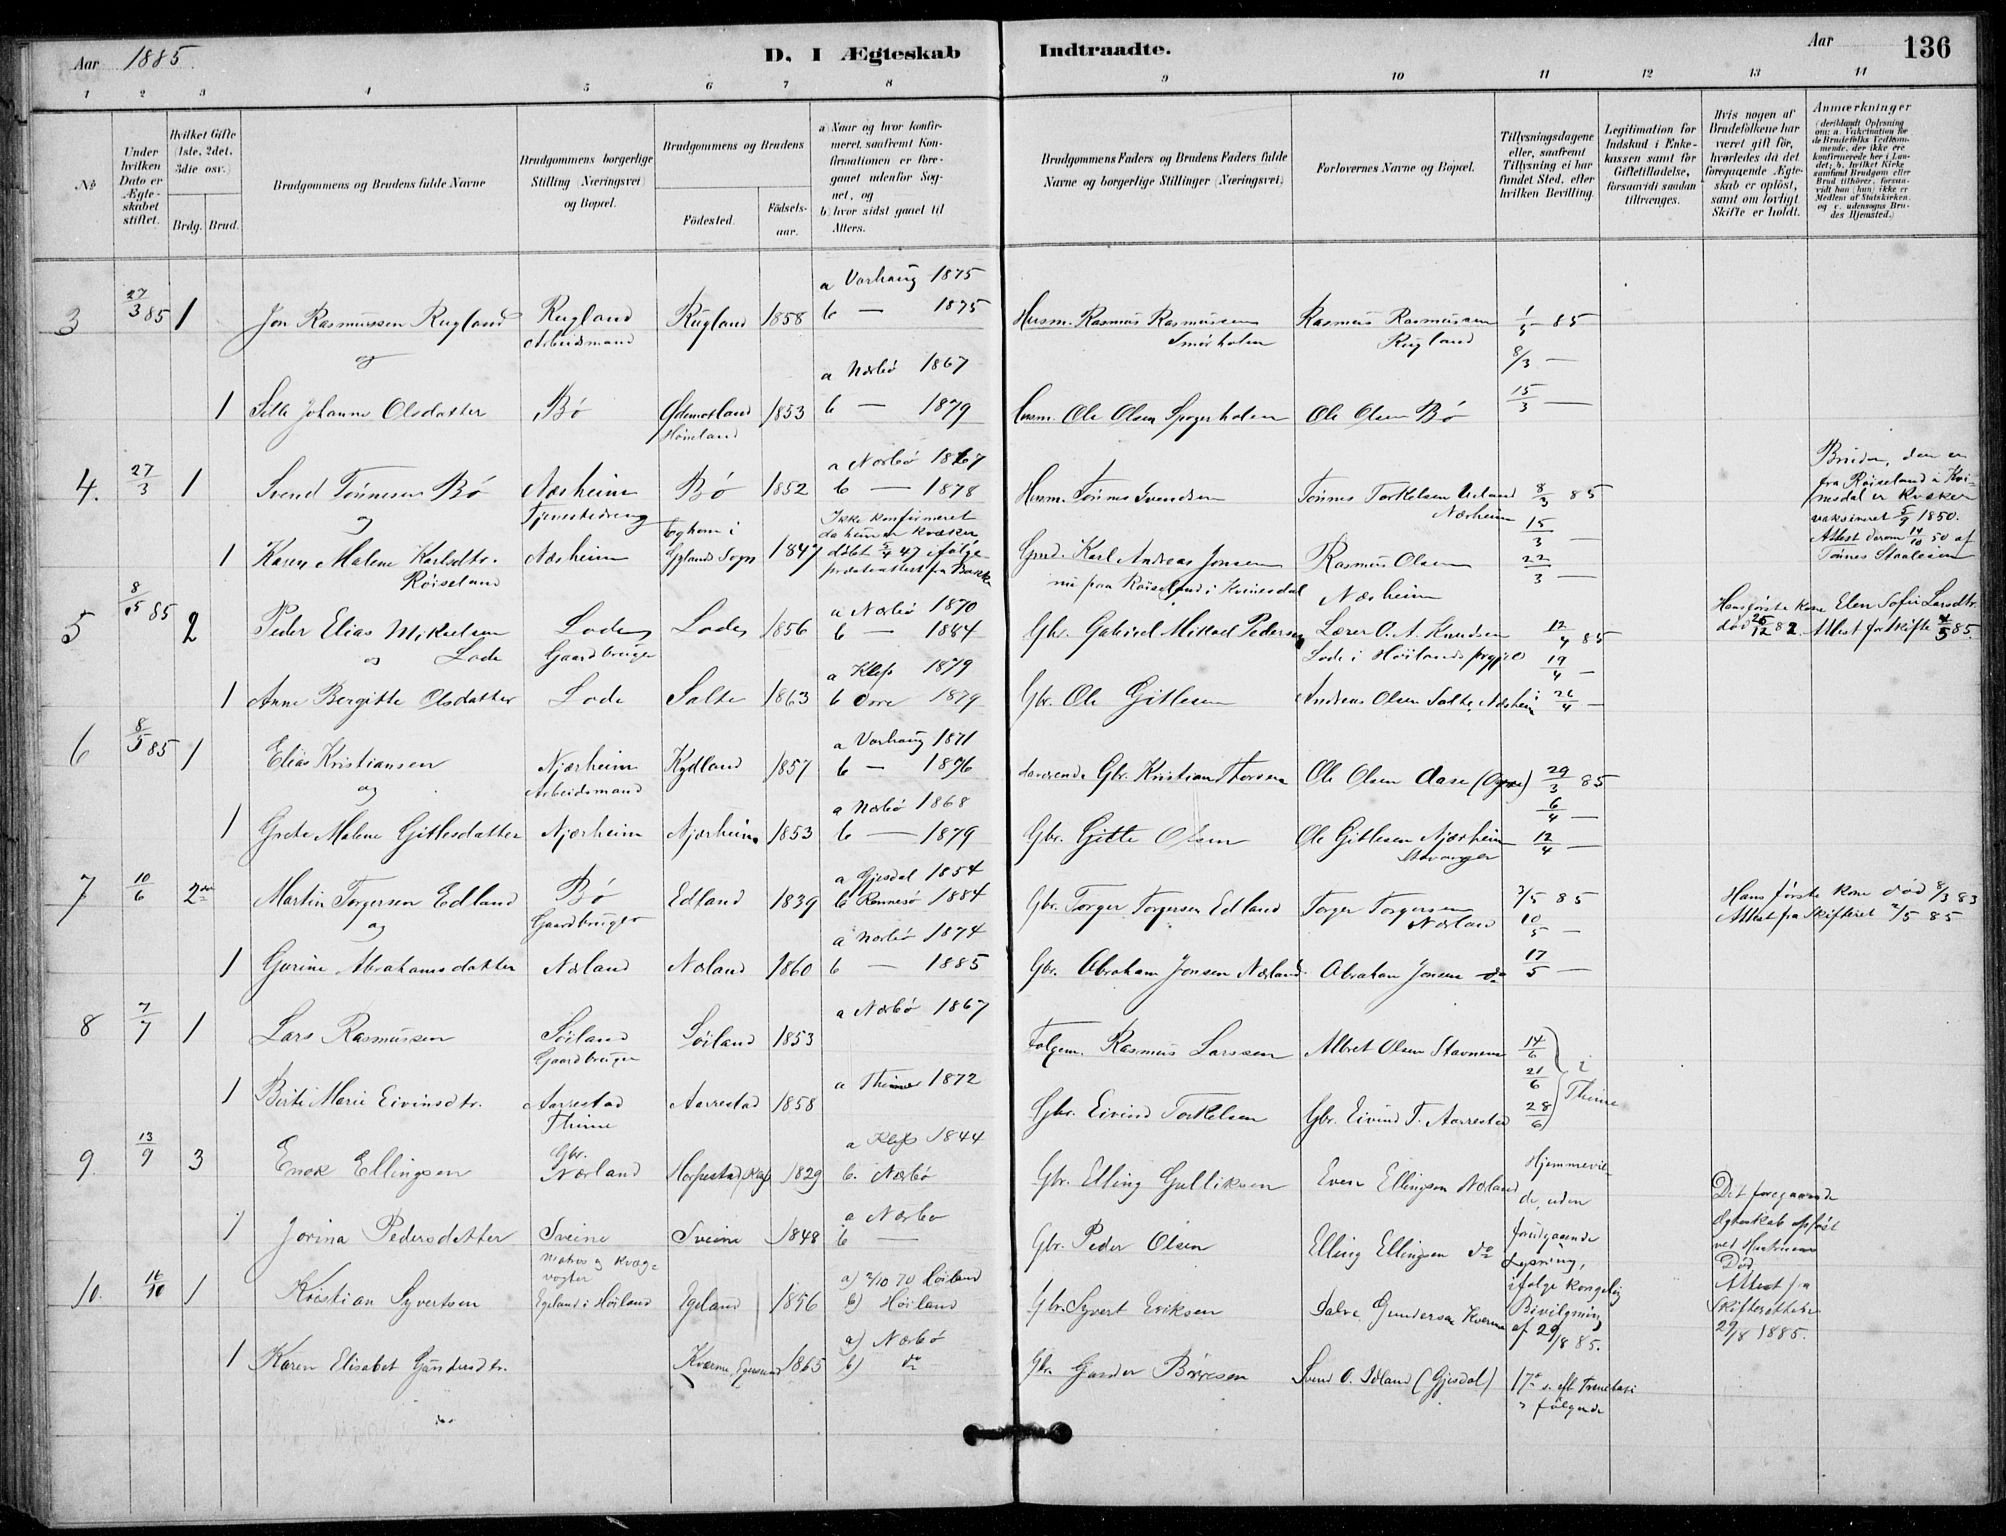 Aar 1885.
D. I Ægteskab Indtraadte.
Aar 136
1 2 3 4 5 6 7 8 9 10 11 12 13 14
No
Under hvilken Dato er Ægteskabet stiftet.
Hvilket Gifte (1ste, 2det, 3die osv.)
Brdg. Brud.
Brudgommens og Brudens fulde Navne
Brudgommens borgerlige Stilling (Næringsvei) og Bopæl.
Brudgommens og Brudens
Fødested. Fødselsaar.
a) Naar og hvor konfirmeret, saafremt Konfirmationen er foreganet udenfor Sognet, og
b) hvor sidst ganet til Alters.
Brudgommens Faders og Brudens Faders fulde Navne og borgerlige Stillinger (Næringsvei)
Forlovernes Navne og Bopæl.
Tillysningsdagene eller, saafremt Tillysning ei har fundet Sted, efter hvilken Bevilling.
Legitimation for Indskud i Enkekassen samt for Giftetilladelse, forsaavidt saadan tiltrænges.
Hvis nogen af Brudefolkene har været gift før, hvorledes da det foregaaende Ægteskab er opløst, samt om lovligt Skifte er holdt.
Anmærkninger
3 27/3 85 1 Jon Rasmussen Rugland Rugland Arbeidsmand Rugland 1858 a Varhaug 1875 b — 1875 Husm. Rasmus Rasmussen Smørholen Rasmus Rasmussen Rugland 1/3 85
og 8/3 —
1 Sille Johanne Olsdatter Bø Ødemotland Høiland 1853 a Nærbø 1867 b — 1879 Husm. Ole Olsen Ole Olsen Bø 15/3 —
4. 27/3 1 Svend Tønnesen Bø Nærheim Tjenestedreng Bø 1852 a Nærbø 1867 b — 1878 Husm. Tønnes Svendsen Tønnes Torkelsen Ueland Nærheim 8/3 85
og 15/3 —
1 Karen Malene Karlsdtr. Røiseland Nærheim Eghom i Gyland Sogn 1847 Ikke konfirmeret da hun er kvæker døbt 5/4 47 ifølge præsteattest fra Bakke Gmd. Karl Andreas Jonsen nu paa Røiseland i Kvinesdal Rasmus Olsen Nærheim 22/3 —
Bruden, den er fra Røiseland i Kvinesdal er kvæker vaksineret 5/9 1850. Attest derom 14/10 50 af Tønnes Staalesen
5 8/5 85 2 Peder Elias Mikaelsen Lode Lode Gaardbruger Lode 1856 a Nærbø 1870 b — 1884 Gbr. Gabriel Mikael Pedersen Lærer O. A. Knudsen Lode i Høilands prgjæld 12/4 85
Hans første kone Elen Sofie Larsdtr. død 26/12 82. Attest fra Skifte 4/5 85.
og 19/4 —
1 Anne Bergitte Olsdatter Lode Salte 1863 a Klep 1879 b Orre 1879 Gbr. Ole Gitlesen Andreas Olsen Salte, Nærheim 26/4 —
6 8/5 85 1 Elias Kristiansen Njærheim Arbeidsmand Kydland 1857 a Varhaug 1871 b — 1876 forværende Gbr. Kristian Thorsen Ole Olsen Aase (Ogne) 29/3 85
og 6/4 —
1 Grete Malene Gitlesdatter Njærheim Njærheim 1853 a Nærbø 1868 b — 1879 Gbr. Gitle Olsen Ole Gitlesen Njærheim Stavanger 12/4 —
7 10/6 2den Martin Torgersen Edland Bø Gaardbruger Edland 1839 a Gjesdal 1854 b Rennesø 1884 Gbr. Torger Torgersen Edland Torger Torgersen Nærland 3/5 85
Hans første kone død 8/3 83 Attest fra Skifteret 2/5 85
og 10/5 —
1 Gurine Abrahamsdatter Nærland Nærland 1860 a Nærbø 1874 b — 1885 Gbr. Abraham Jonsen Nærland Abraham Jonsen do 17/5 —
8 7/7 1 Lars Rasmussen Søiland Gaardbruger Søiland 1853 a Nærbø 1867 Folgem. Rasmus Larssen Albret Olsen Stavnem 14/6
21/6 i Thime
1 Berte Marie Eivinsdtr. Aarrestad Thime Aarrestad 1858 a Thime 1872 Gbr. Eivind Torkelsen Gbr. Eivind T. Aarrestad 28/6
9. 13/9 3 Enok Ellingsen Gbr. Nærland Horpestad (Klep) 1829 a Klep 1844 b. Nærbø Gbr. Elling Gulliksen Even Ellingsen Nærland
Hjemmeviede, uden forudgaaende Lysning, ifølge kongelig Bevilgning af 29/8 85.
Det foregaaende Ægteskab opløst ved Hustruens Død Attest fra Skifteretten 29/8 1885.
1 Jorina Pedersdatter Sveine Sveine 1848 a Nærbø b — Gbr. Peder Olsen Elling Ellingsen do
10. 16/10 1 Kristian Syvertsen Matros og Kvægvogter Egeland i Høiland Egeland 1856 a) 2/10 70 Høiland b) Høiland Gbr. Syvert Eriksen Salve Gundersen Kverme
1 Karen Elisabet Gundersdtr. Kværme, Egersund 1865 a) Nærbø b) do Gbr. Gunder Børresen Svend O. Idland (Gjesdal) 17de s. eft. Trinitatis følgende